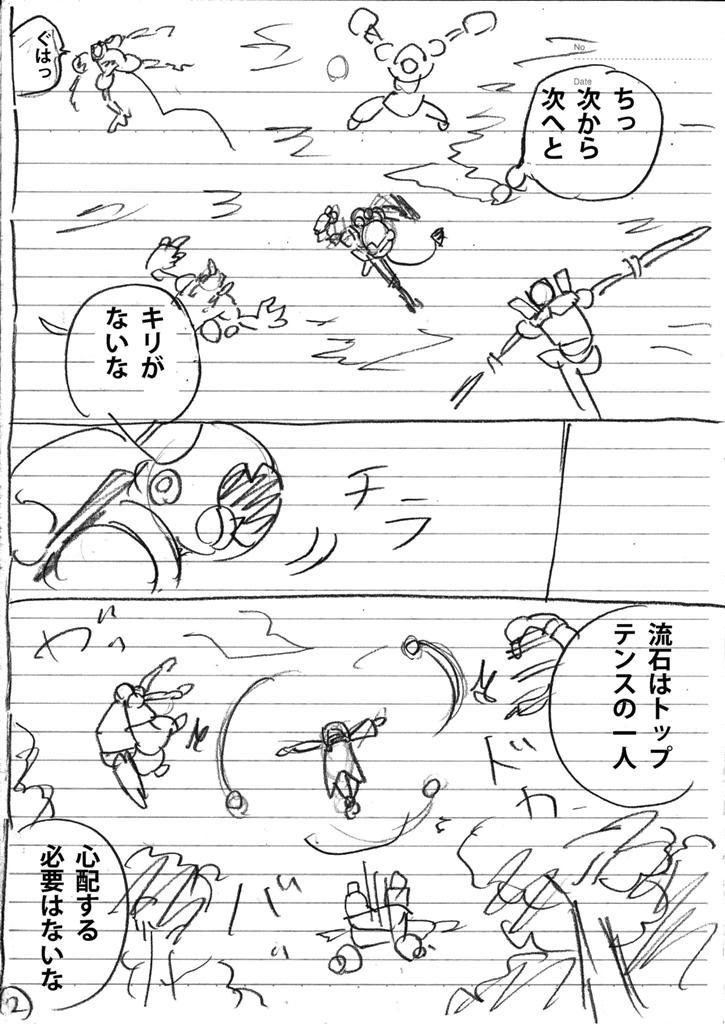 No
Date
ちっ
次から
次へと
ぐはっ
キリが
ないな
チラ
流石はトップ
テンスの一人
ガッ
ドカ
バ
心配する
必要はないな
2